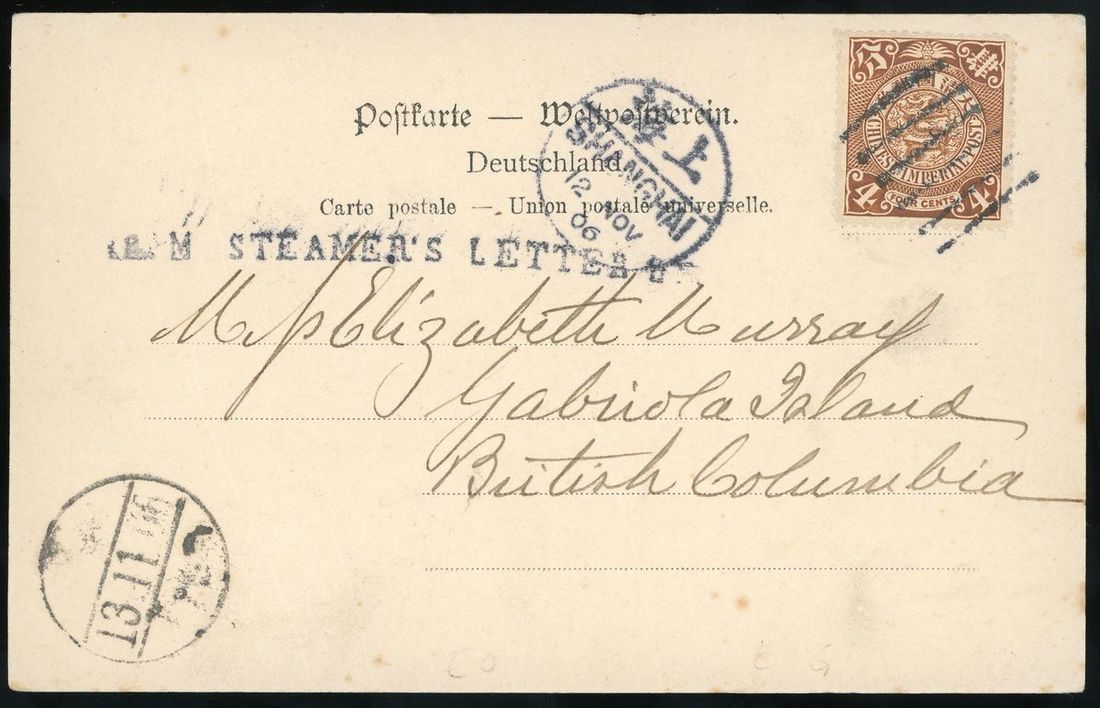 Postkarte — Weltpostverein.
Deutschland.
Carte postale — Union postale universelle.
STEAMER'S LETTER
上
SHANGHAI
12 NOV
06
肆
CHINESE IMPERIAL POST
4 FOUR CENTS 4
Elizabeth Murray
Gabriola Island
British Columbia
13.11